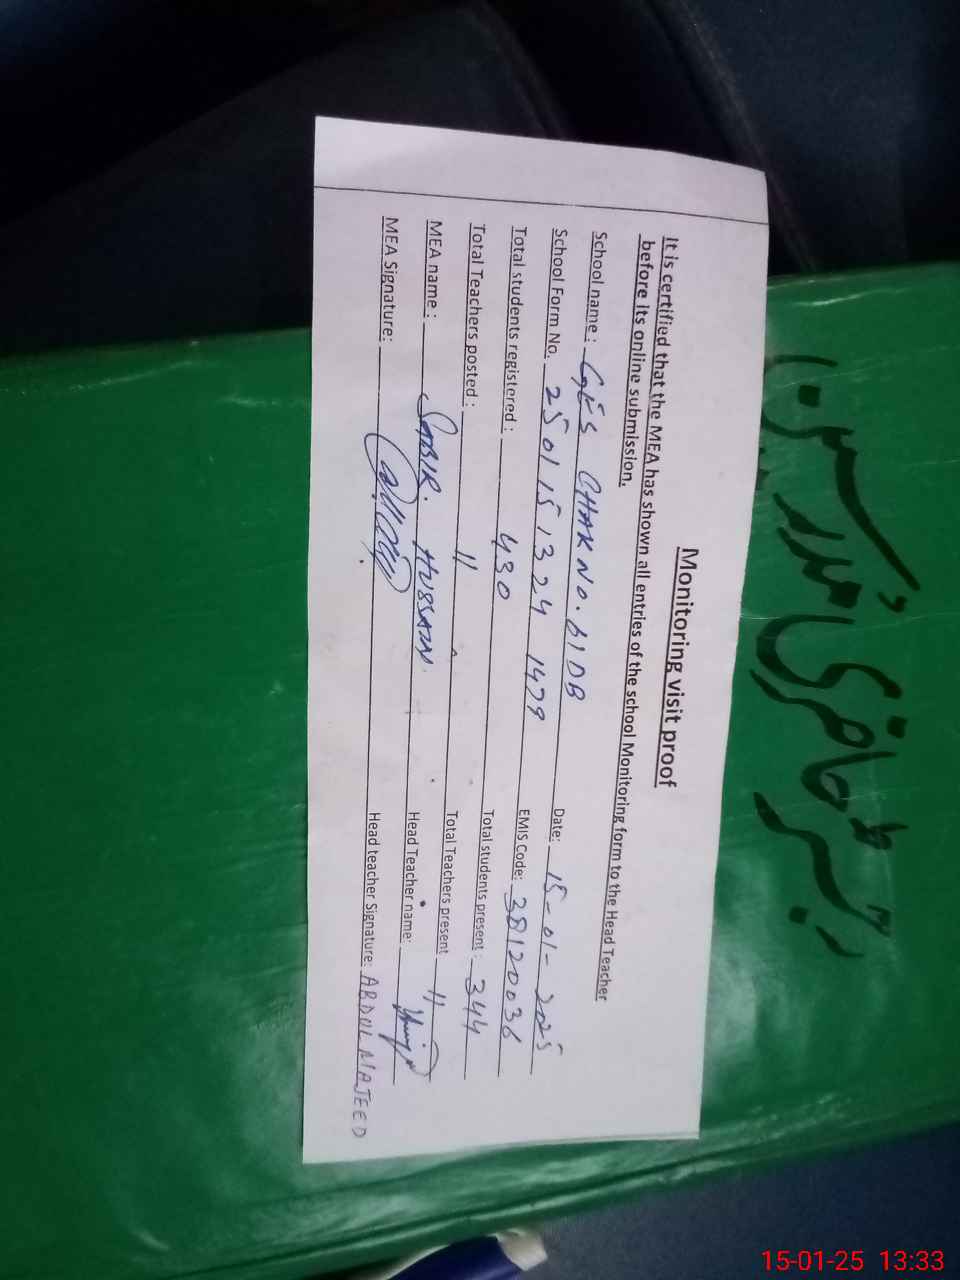 Monitoring visit proof
It is certified that the MEA has shown all entries of the school Monitoring form to the Head Teacher
before its online submission.
School name : GES CHAK NO. 61 DB Date: 15-01-2025
School Form No. 25011513241479 EMIS Code: 38120036
Total students registered : 430 Total students present : 344
Total Teachers posted : 11 Total Teachers present 11
MEA name : SABIR HUSSAIN Head Teacher name:
MEA Signature: Head teacher Signature: ABDUL MAJEED
رجسٹر حاضری مدرسین
15-01-25 13:33